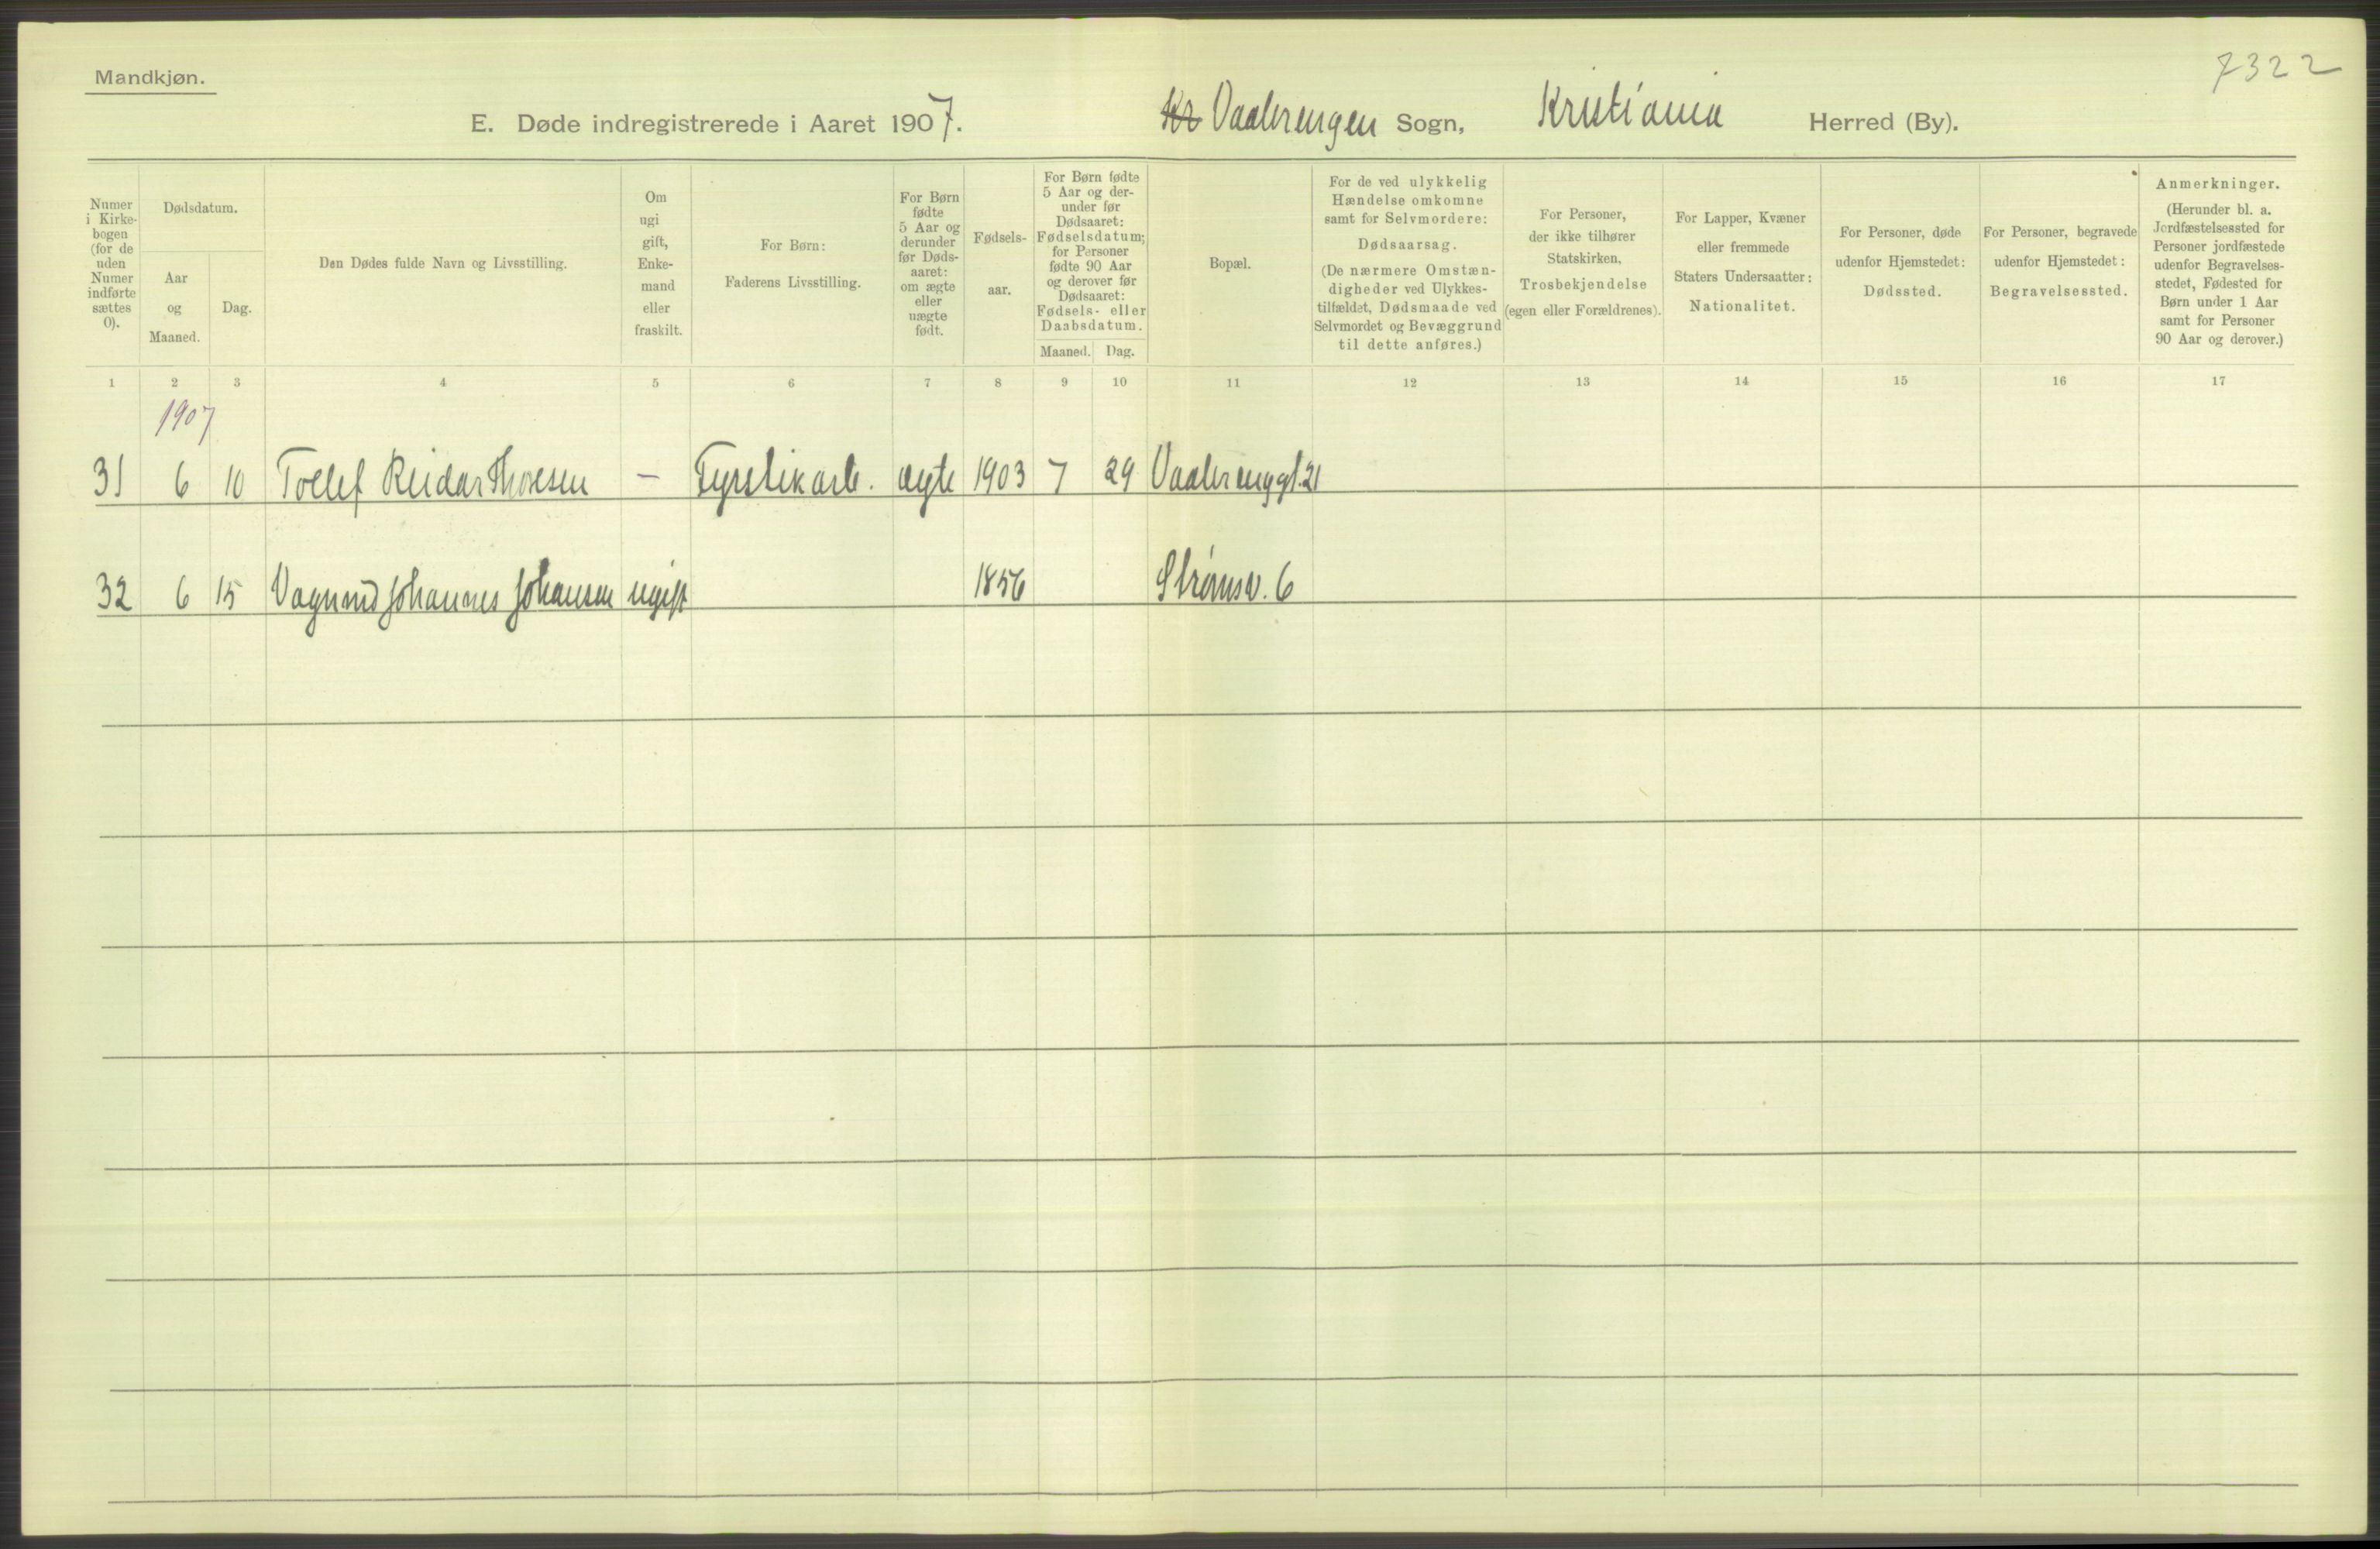 Mandkjøn.
7322
E. Døde indregistrerede i Aaret 1907. Vaalerengen Sogn, Kristiania Herred (By).
Numer i Kirkebogen (for de uden Numer indførte sættes 0).
Dødsdatum.
Aar og Maaned.
Dag.
Den Dødes fulde Navn og Livsstilling.
Om ugi gift, Enkemand eller fraskilt.
For Børn: Faderens Livsstilling.
For Børn fødte 5 Aar og derunder før Dødsaaret: om ægte eller uægte født.
Fødselsaar.
For Børn fødte 5 Aar og derunder før Dødsaaret: Fødselsdatum; for Personer fødte 90 Aar og derover før Dødsaaret: Fødsels- eller Daabsdatum.
Maaned. Dag.
Bopæl.
For de ved ulykkelig Hændelse omkomne samt for Selvmordere: Dødsaarsag. (De nærmere Omstændigheder ved Ulykkestilfældet, Dødsmaade ved Selvmordet og Bevæggrund til dette anføres.)
For Personer, der ikke tilhører Statskirken, Trosbekjendelse (egen eller Forældrenes).
For Lapper, Kvæner eller fremmede Staters Undersaatter: Nationalitet.
For Personer, døde udenfor Hjemstedet: Dødssted.
For Personer, begravede udenfor Hjemstedet: Begravelsessted.
Anmerkninger. (Herunder bl. a. Jordfæstelsessted for Personer jordfæstede udenfor Begravelsesstedet, Fødested for Børn under 1 Aar samt for Personer 90 Aar og derover.)
1 2 3 4 5 6 7 8 9 10 11 12 13 14 15 16 17
1907
31 6 10 Tollef Reidar Thoresen — Fyrstikarb. ægte 1903 7 29 Vaalerenggt. 21
32 6 15 Johannes Johansen ugift 1856 Strømsv. 6